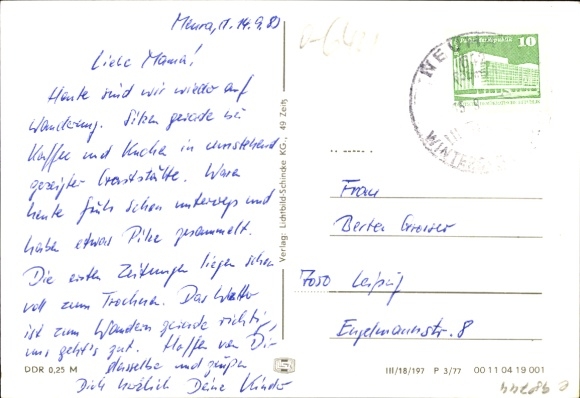 Meura, d. 14.9.83
Liebe Mama!
Heute sind wir wieder auf
Wanderung. Sitzen gerade bei
Kaffee und Kuchen in umstehend
gezeigter Gaststätte. Waren
heute früh schon unterwegs und
haben etwas Pilze gesammelt.
Die ersten Zeitungen liegen schon
voll zum Trocknen. Das Wetter
ist zum Wandern gerade richtig,
uns geht's gut. Hoffen von Dir
dasselbe und grüßen
Dich herzlich Deine Kinder
DDR 0,25 M
Verlag: Lichtbild-Schincke KG., 49 Zeitz
10
NEUH
WINTERS
Frau
Berta
7050 Leipzig
Engelmannstr. 8
III/18/197 P 3/77 00 11 04 19 001